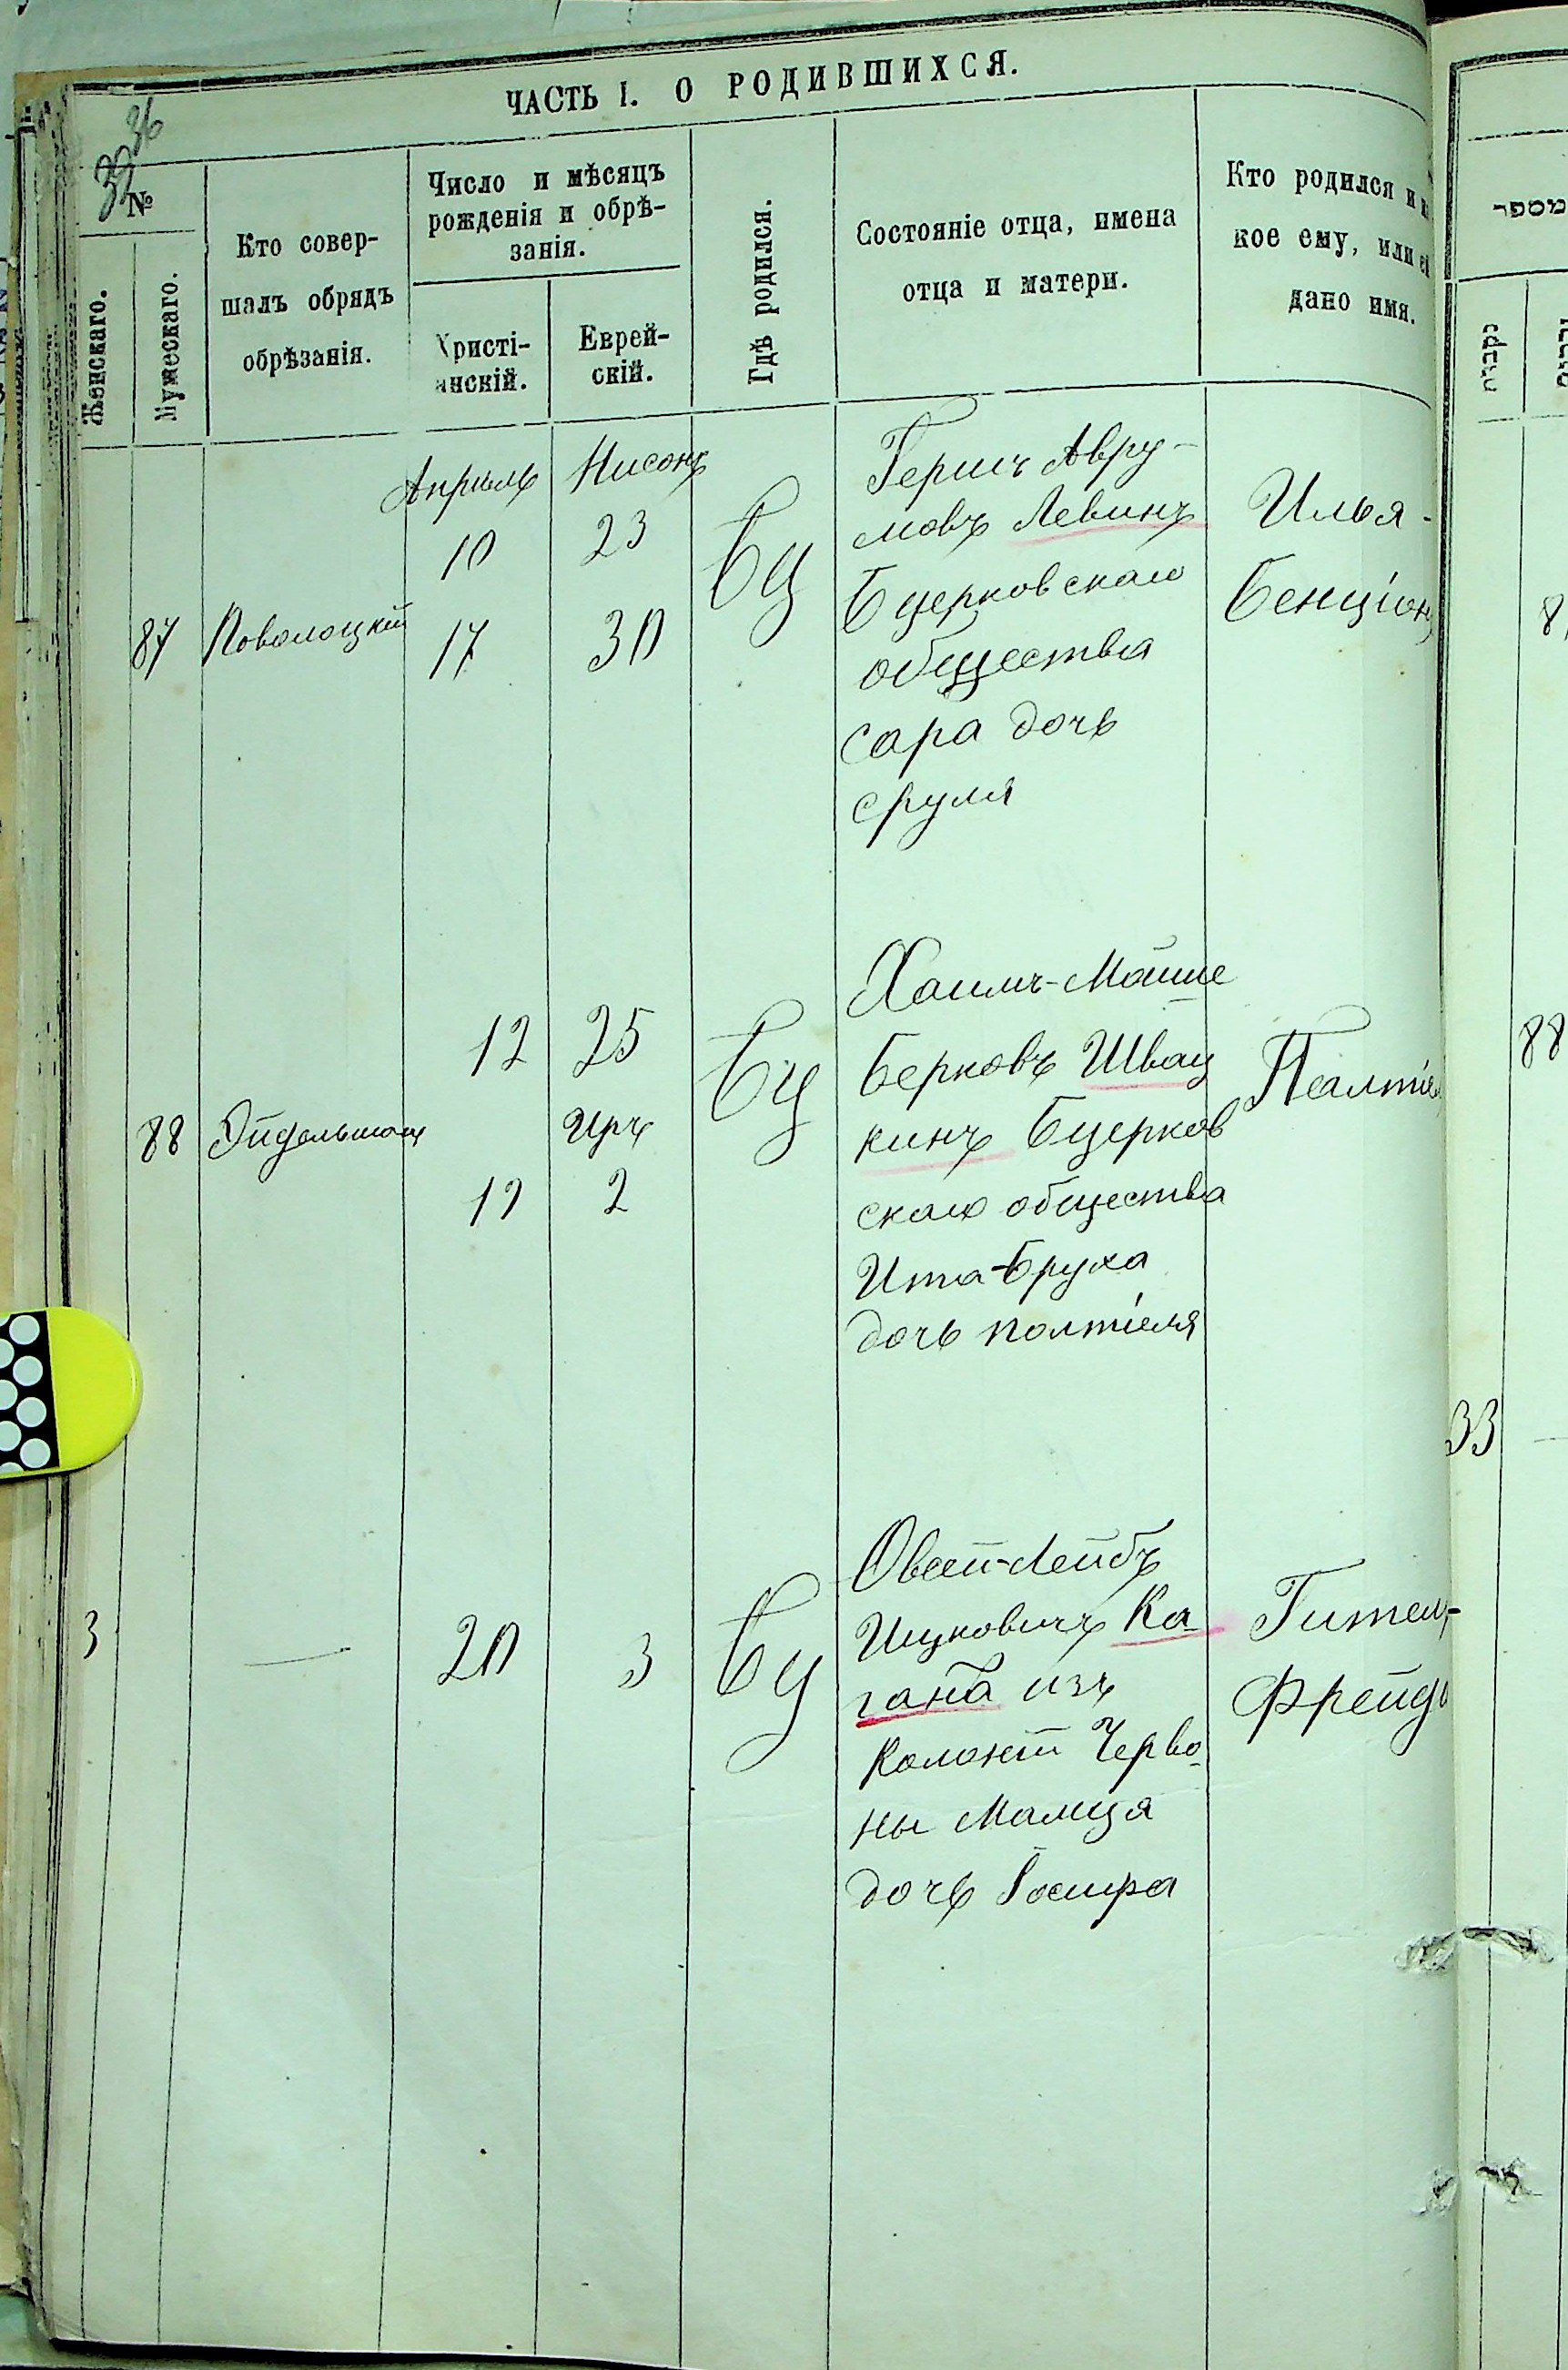 ЧАСТЬ I. О РОДИВШИХСЯ.
36
№
Женскаго.
Мужескаго.
Кто совер-
шалъ обрядъ
обрѣзанія.
Число и мѣсяцъ
рожденія и обрѣ-
занія.
Христі-
анскій.
Еврей-
скій.
Гдѣ родился.
Состояніе отца, имена
отца и матери.
Кто родился и
кое ему, или
дано имя.
מספר
נקבות
87
Поволоцкій
Апрѣль
10
17
Нисонъ
23
30
БЦ
Гершъ Авру-
мовъ Левинъ
Бцерковскаго
общества
Сара дочь
Сруля
Илья-
Бенціонъ
88
Эйдельман
12
19
25
Иръ
2
БЦ
Хаимъ-Мойше
Берковъ Швац
кинъ Бцерков
скаго общества
Ита-Бруха
дочь Полтіеля
88
33
3
—
20
3
БЦ
Овсей-Лейбъ
Ицковичъ Ка
гана изъ
Колоніи Черво
ны Малця
дочь Іосифа
Гитель-
Фрейд